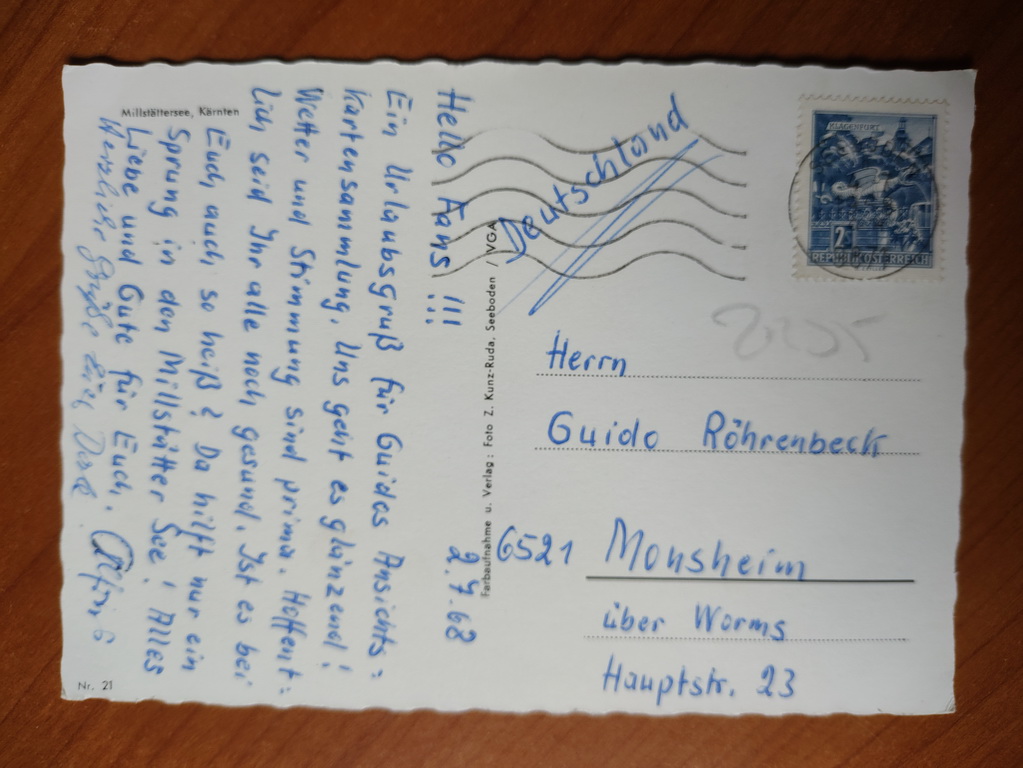 Millstättersee, Kärnten
Hello Fans !!!
2.7.68
Ein Urlaubsgruß für Guidos Ansichts=
kartensammlung. Uns geht es glänzend!
Wetter und Stimmung sind prima. Hoffent=
lich seid Ihr alle noch gesund. Ist es bei
Euch auch so heiß? Da hilft nur ein
Sprung in den Millstätter See! Alles
Liebe und Gute für Euch.
Herzliche Grüße
Nr. 21
Farbaufnahme u. Verlag: Foto Z. Kunz-Ruda, Seeboden / VGA
Deutschland
KLAGENFURT
2
REPUBLIK ÖSTERREICH
Herrn
Guido Röhrenbeck
6521 Monsheim
über Worms
Hauptstr. 23